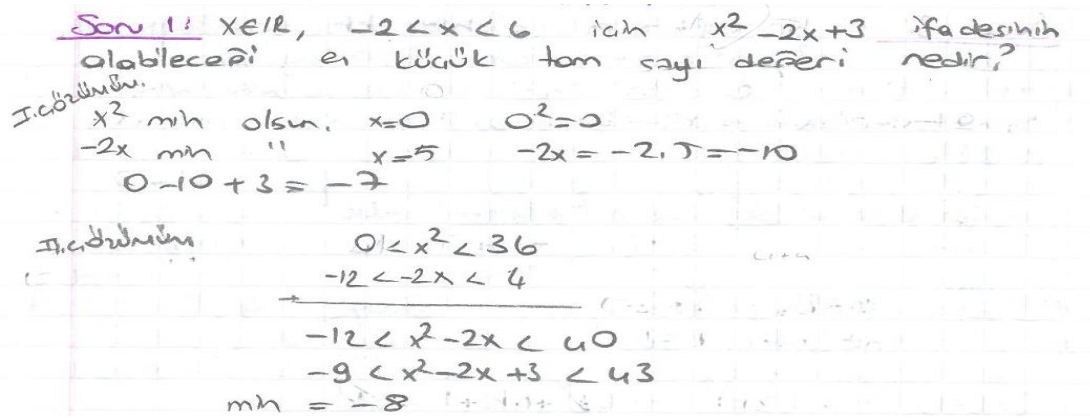 Soru 1: x∈IR, -2 < x < 6 için x² - 2x + 3 ifadesinin
alabileceği en küçük tam sayı değeri nedir?
I. çözümüm
x² min olsun. x=0 0²=0
-2x min " x=5 -2x = -2.5 = -10
0 - 10 + 3 = -7
II. çözümüm
0 < x² < 36
-12 < -2x < 4
+
-12 < x² - 2x < 40
-9 < x² - 2x + 3 < 43
min = -8